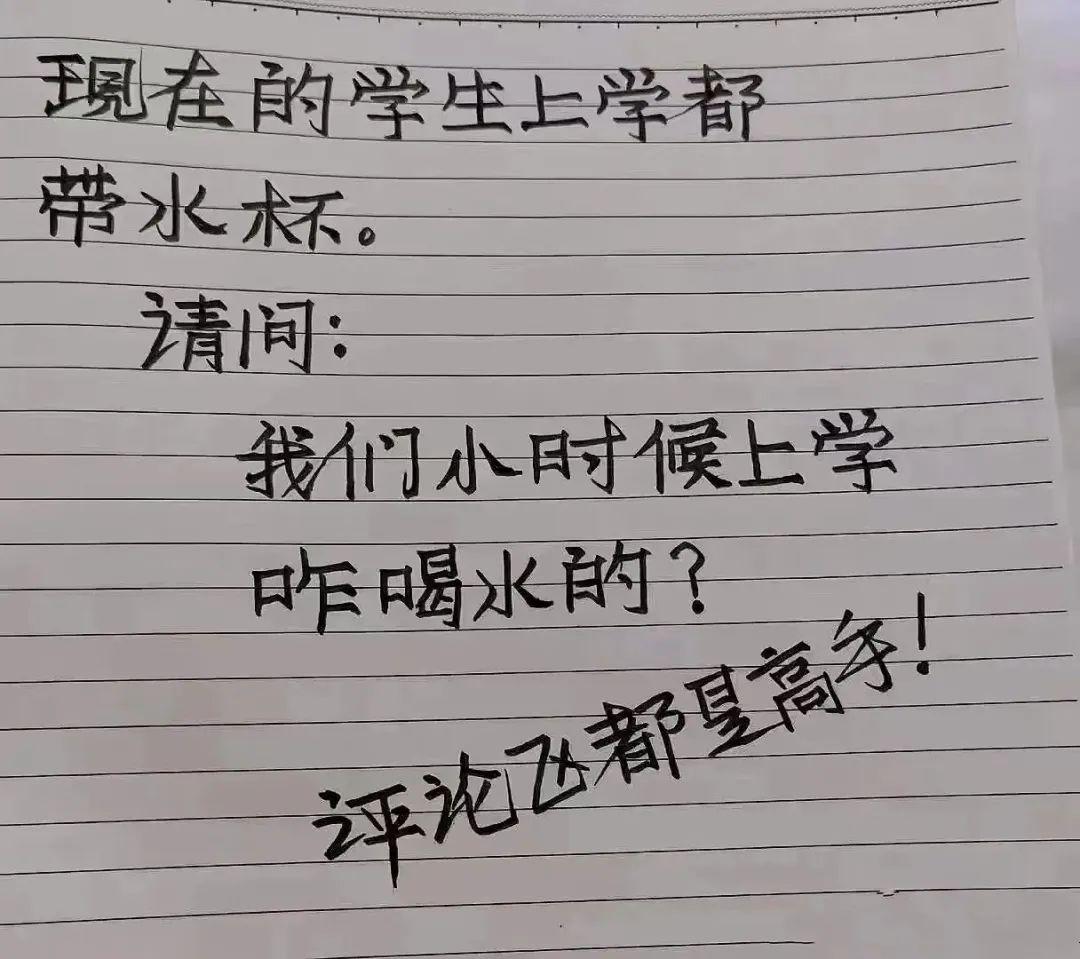 现在的学生上学都
带水杯。
请问：
我们小时候上学
咋喝水的？
评论区都是高手！